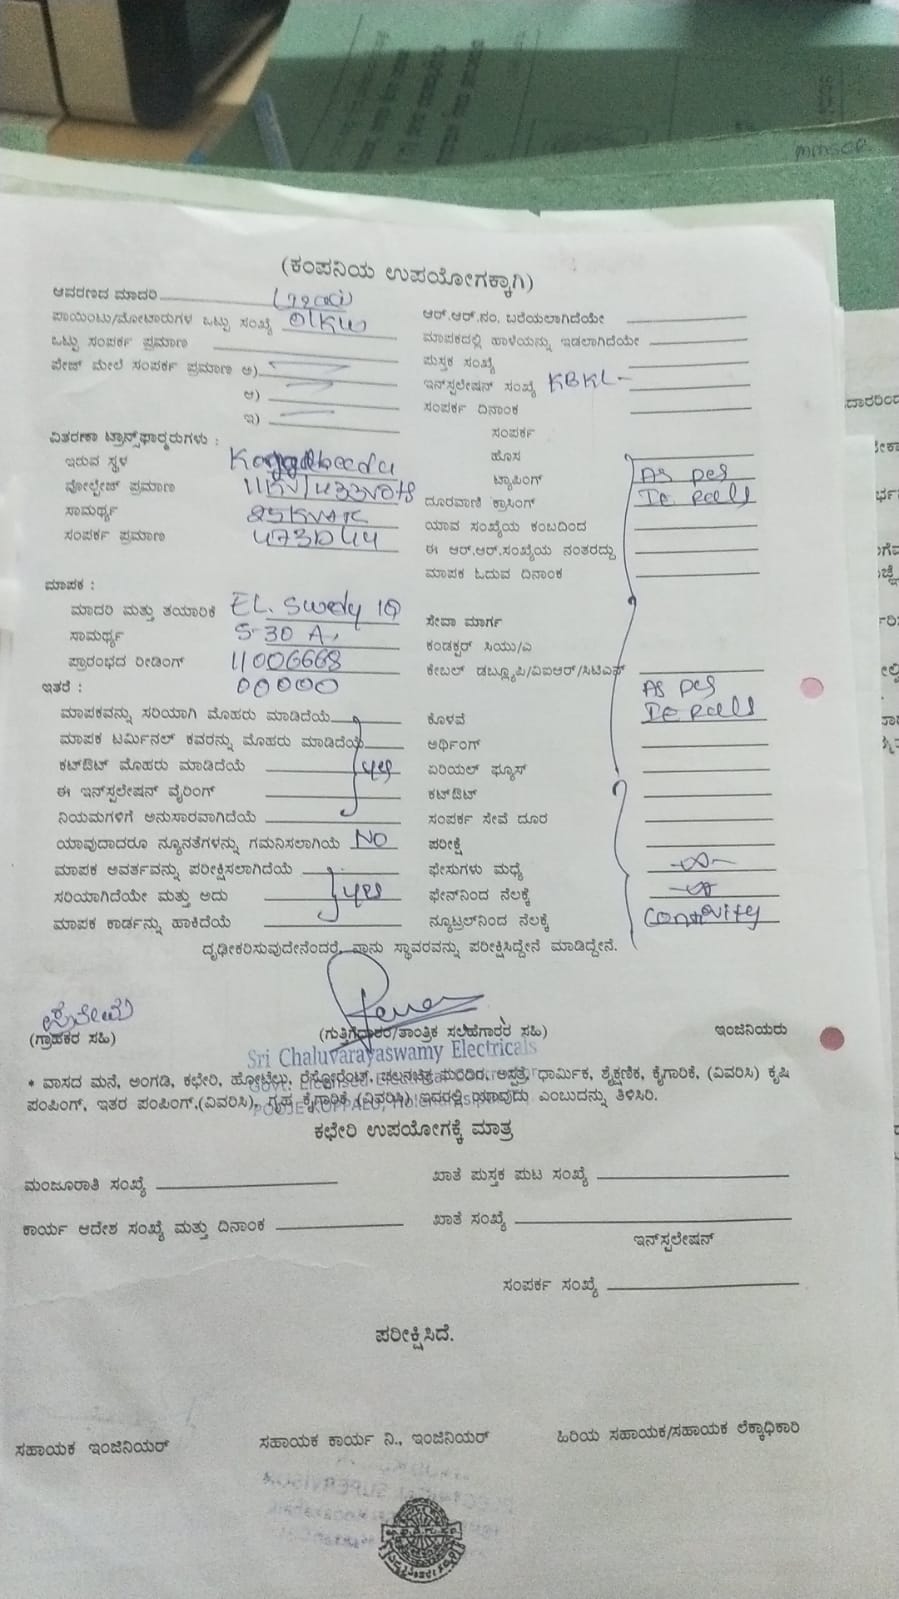 (ಕಂಪನಿಯ ಉಪಯೋಗಕ್ಕಾಗಿ)
ಆವರಣದ ಮಾದರಿ
ಪಾಯಿಂಟು/ಮೋಟಾರುಗಳ ಒಟ್ಟು ಸಂಖ್ಯೆ 01KW
ಒಟ್ಟು ಸಂಪರ್ಕ ಪ್ರಮಾಣ
ಪೇಜ್ ಮೇಲೆ ಸಂಪರ್ಕ ಪ್ರಮಾಣ ಅ)
ಆ)
ಇ)
ವಿತರಣಾ ಟ್ರಾನ್ಸ್‌ಫಾರ್ಮರುಗಳು :
ಇರುವ ಸ್ಥಳ
ವೋಲ್ಟೇಜ್ ಪ್ರಮಾಣ 11KV/433Volts
ಸಾಮರ್ಥ್ಯ 25KVA
ಸಂಪರ್ಕ ಪ್ರಮಾಣ
ಮಾಪಕ :
ಮಾದರಿ ಮತ್ತು ತಯಾರಿಕೆ EL. Swedy 1Φ
ಸಾಮರ್ಥ್ಯ 5-30 A,
ಪ್ರಾರಂಭದ ರೀಡಿಂಗ್ 11006668
ಇತರೆ : 00000
ಮಾಪಕವನ್ನು ಸರಿಯಾಗಿ ಮೊಹರು ಮಾಡಿದೆಯೆ
ಮಾಪಕ ಟರ್ಮಿನಲ್ ಕವರನ್ನು ಮೊಹರು ಮಾಡಿದೆಯೆ
ಕಟ್‌ಔಟ್ ಮೊಹರು ಮಾಡಿದೆಯೆ yes
ಈ ಇನ್‌ಸ್ಟಲೇಷನ್ ವೈರಿಂಗ್
ನಿಯಮಗಳಿಗೆ ಅನುಸಾರವಾಗಿದೆಯೆ
ಯಾವುದಾದರೂ ನ್ಯೂನತೆಗಳನ್ನು ಗಮನಿಸಲಾಗಿಯೆ NO
ಮಾಪಕ ಅವರ್ತವನ್ನು ಪರೀಕ್ಷಿಸಲಾಗಿದೆಯೆ
ಸರಿಯಾಗಿದೆಯೇ ಮತ್ತು ಅದು yes
ಮಾಪಕ ಕಾರ್ಡನ್ನು ಹಾಕಿದೆಯೆ
ಆರ್.ಆರ್.ನಂ. ಬರೆಯಲಾಗಿದೆಯೇ
ಮಾಪಕದಲ್ಲಿ ಹಾಳೆಯನ್ನು ಇಡಲಾಗಿದೆಯೇ
ಪುಸ್ತಕ ಸಂಖ್ಯೆ
ಇನ್‌ಸ್ಟಲೇಷನ್ ಸಂಖ್ಯೆ KBKL-
ಸಂಪರ್ಕ ದಿನಾಂಕ
ಸಂಪರ್ಕ
ಹೊಸ
ಟ್ಯಾಪಿಂಗ್ As per
ದೂರವಾಣಿ ಕ್ರಾಸಿಂಗ್ IE
ಯಾವ ಸಂಖ್ಯೆಯ ಕಂಬದಿಂದ
ಈ ಆರ್.ಆರ್.ಸಂಖ್ಯೆಯ ನಂತರದ್ದು
ಮಾಪಕ ಓದುವ ದಿನಾಂಕ
ಸೇವಾ ಮಾರ್ಗ
ಕಂಡಕ್ಟರ್ ಸಿಯು/ಎ
ಕೇಬಲ್ ಡಬ್ಲ್ಯೂಪಿ/ವಿಐಆರ್/ಸಿಟಿಎಸ್
As per
ಕೊಳವೆ IE
ಅರ್ಥಿಂಗ್
ಏರಿಯಲ್ ಫ್ಯೂಸ್
ಕಟ್‌ಔಟ್
ಸಂಪರ್ಕ ಸೇವೆ ದೂರ
ಪರೀಕ್ಷೆ
ಫೇಸುಗಳು ಮಧ್ಯೆ -∞-
ಫೇಸ್‌ನಿಂದ ನೆಲಕ್ಕೆ -∞
ನ್ಯೂಟ್ರಲ್‌ನಿಂದ ನೆಲಕ್ಕೆ
ದೃಢೀಕರಿಸುವುದೇನೆಂದರೆ, ನಾನು ಸ್ಥಾವರವನ್ನು ಪರೀಕ್ಷಿಸಿದ್ದೇನೆ ಮಾಡಿದ್ದೇನೆ.
(ಗ್ರಾಹಕರ ಸಹಿ) (ಗುತ್ತಿಗೆದಾರರ/ತಾಂತ್ರಿಕ ಸಲಹೆಗಾರರ ಸಹಿ) ಇಂಜಿನಿಯರು
Sri Chaluvarayaswamy Electricals
* ವಾಸದ ಮನೆ, ಅಂಗಡಿ, ಕಛೇರಿ, ಹೋಟೆಲು, ರೆಸ್ಟೋರೆಂಟ್, ಚಲನಚಿತ್ರ ಮಂದಿರ, ಆಸ್ಪತ್ರೆ, ಧಾರ್ಮಿಕ, ಶೈಕ್ಷಣಿಕ, ಕೈಗಾರಿಕೆ, (ವಿವರಿಸಿ) ಕೃಷಿ
ಪಂಪಿಂಗ್, ಇತರ ಪಂಪಿಂಗ್,(ವಿವರಿಸಿ), ಗೃಹ ಕೈಗಾರಿಕೆ (ವಿವರಿಸಿ) ಇದರಲ್ಲಿ ಯಾವುದು ಎಂಬುದನ್ನು ತಿಳಿಸಿರಿ.
ಕಛೇರಿ ಉಪಯೋಗಕ್ಕೆ ಮಾತ್ರ
ಮಂಜೂರಾತಿ ಸಂಖ್ಯೆ ಖಾತೆ ಪುಸ್ತಕ ಪುಟ ಸಂಖ್ಯೆ
ಕಾರ್ಯ ಆದೇಶ ಸಂಖ್ಯೆ ಮತ್ತು ದಿನಾಂಕ ಖಾತೆ ಸಂಖ್ಯೆ
ಇನ್‌ಸ್ಟಲೇಷನ್
ಸಂಪರ್ಕ ಸಂಖ್ಯೆ
ಪರೀಕ್ಷಿಸಿದೆ.
ಸಹಾಯಕ ಇಂಜಿನಿಯರ್ ಸಹಾಯಕ ಕಾರ್ಯ ನಿ., ಇಂಜಿನಿಯರ್ ಹಿರಿಯ ಸಹಾಯಕ/ಸಹಾಯಕ ಲೆಕ್ಕಾಧಿಕಾರಿ